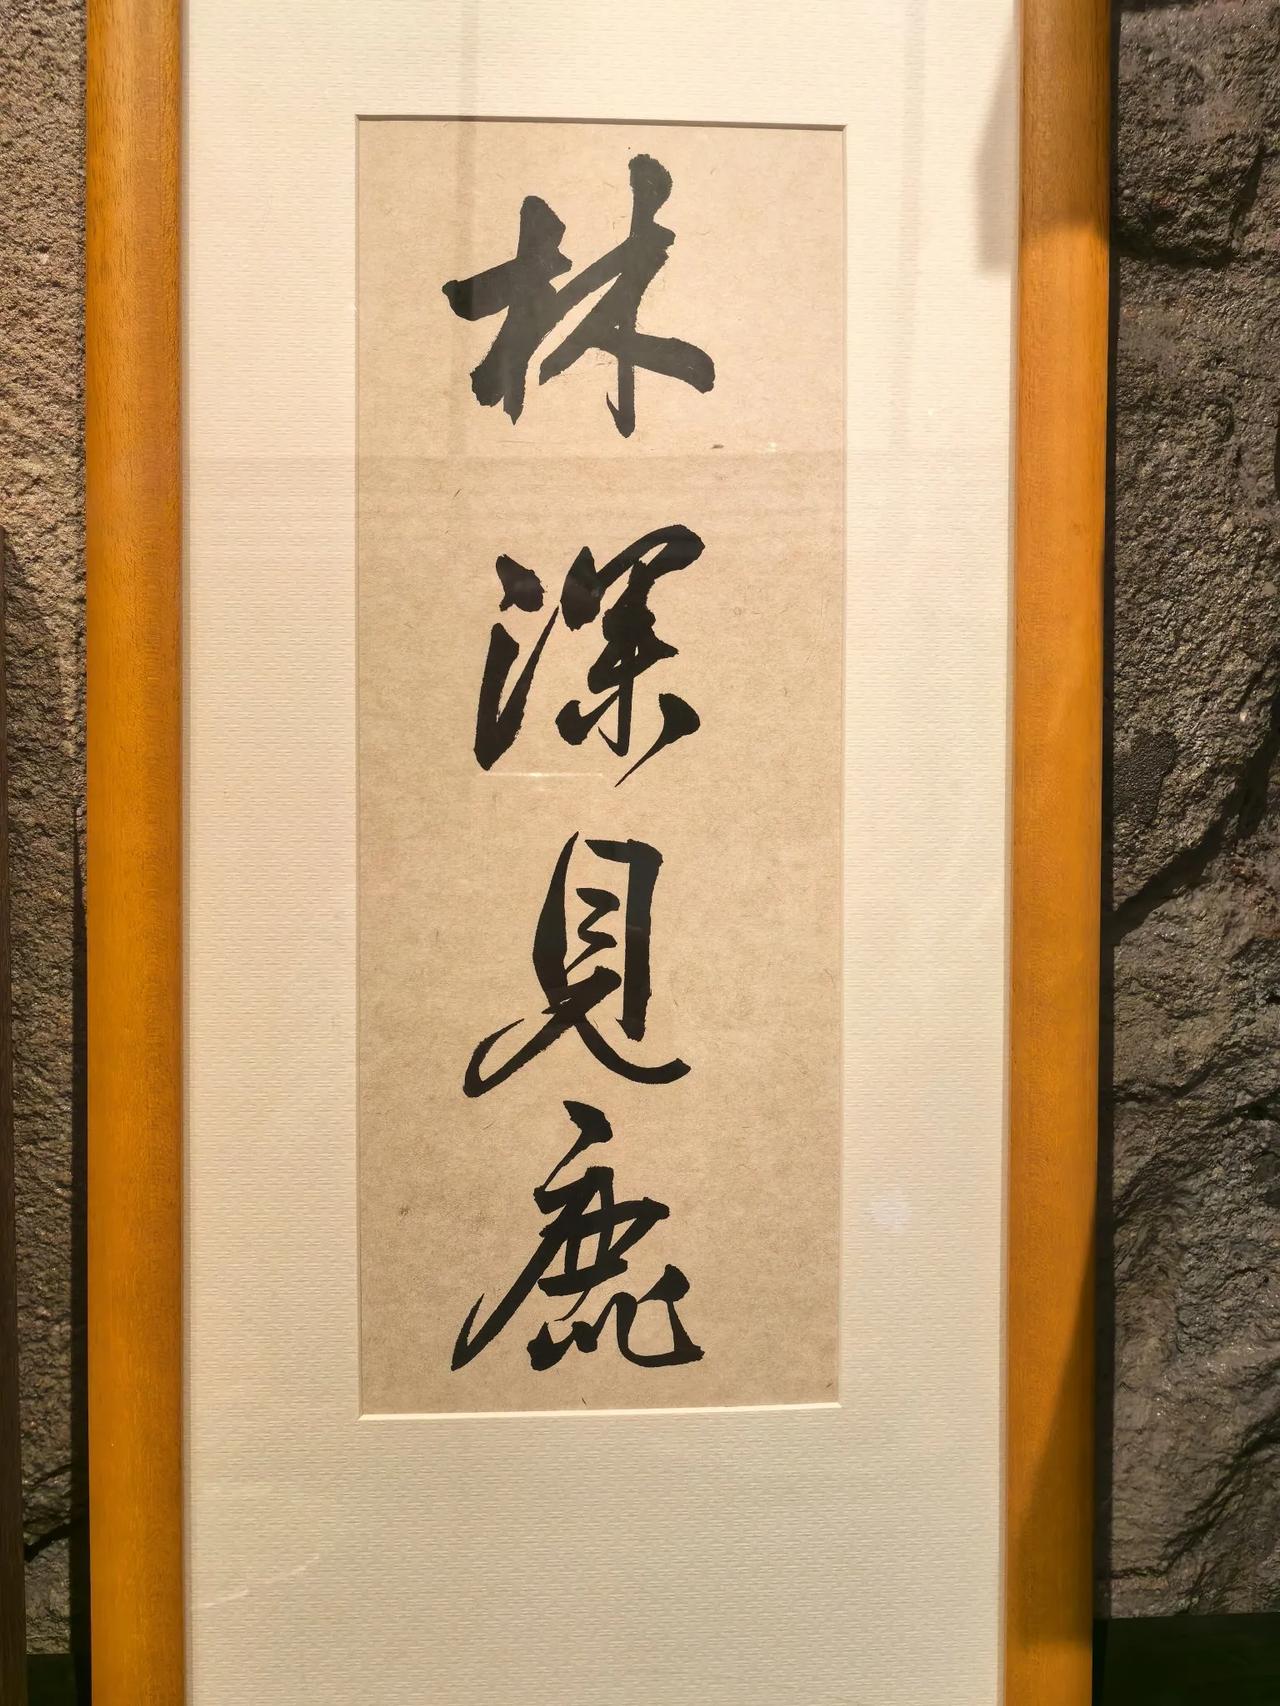 林深見鹿